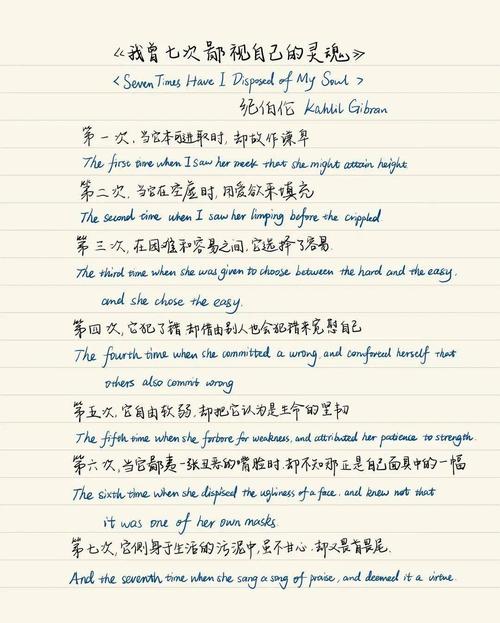 《我曾七次鄙视自己的灵魂》
<Seven Times Have I Disposed of My Soul>
纪伯伦 Kahlil Gibran
第一次,当它本可进取时,却故作谦卑
The first time when I saw her meek that she might attain height.
第二次,当它在空虚时,用爱欲来填充
The second time when I saw her limping before the crippled.
第三次,在困难和容易之间,它选择了容易.
The third time when she was given to choose between the hard and the easy,
and she chose the easy.
第四次,它犯了错,却借由别人也会犯错来宽慰自己
The fourth time when she committed a wrong, and comforted herself that
others also commit wrong
第五次,它自由软弱,却把它认为是生命的坚韧
The fifth time when she forbore for weakness, and attributed her patience to strength.
第六次,当它鄙夷一张丑恶的嘴脸时,却不知那正是自己面具中的一幅
The sixth time when she dispised the ugliness of a face, and knew not that
it was one of her own masks.
第七次,它侧身于生活的污泥中,虽不甘心,却又畏首畏尾.
And the seventh time when she sang a song of praise, and deemed it a virtue.